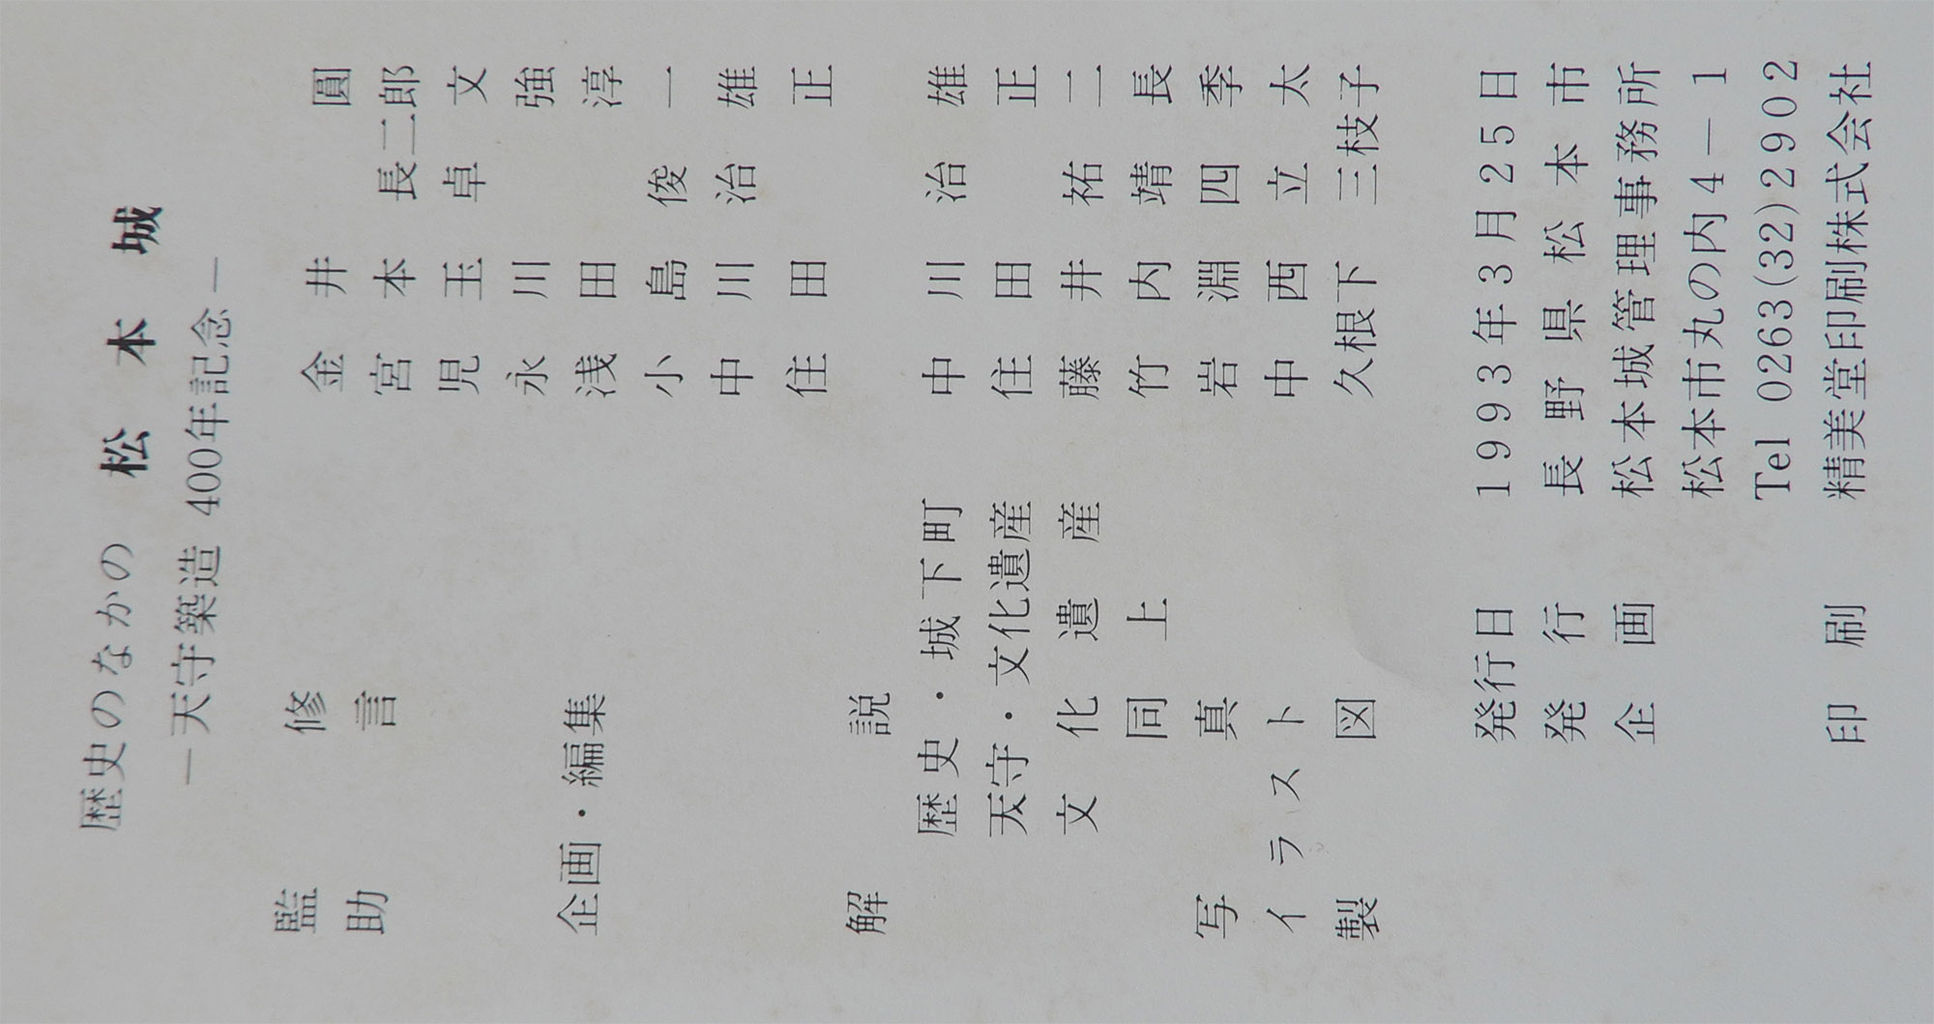 歴史のなかの 松本城
―天守築造 400年記念―
監修 金井圓
助言 宮本長二郎
児玉卓文
永川強
企画・編集 浅田淳
小島俊一
中川治雄
住田正
解説
歴史・城下町 中川治雄
天守・文化遺産 住田正
文化遺産 藤井祐二
同上 竹内靖長
写真 岩淵四季
イラスト 中西立太
製図 久根下三枝子
発行日 1993年3月25日
発行 長野県松本市
企画 松本城管理事務所
松本市丸の内4－1
Tel 0263(32)2902
印刷 精美堂印刷株式会社